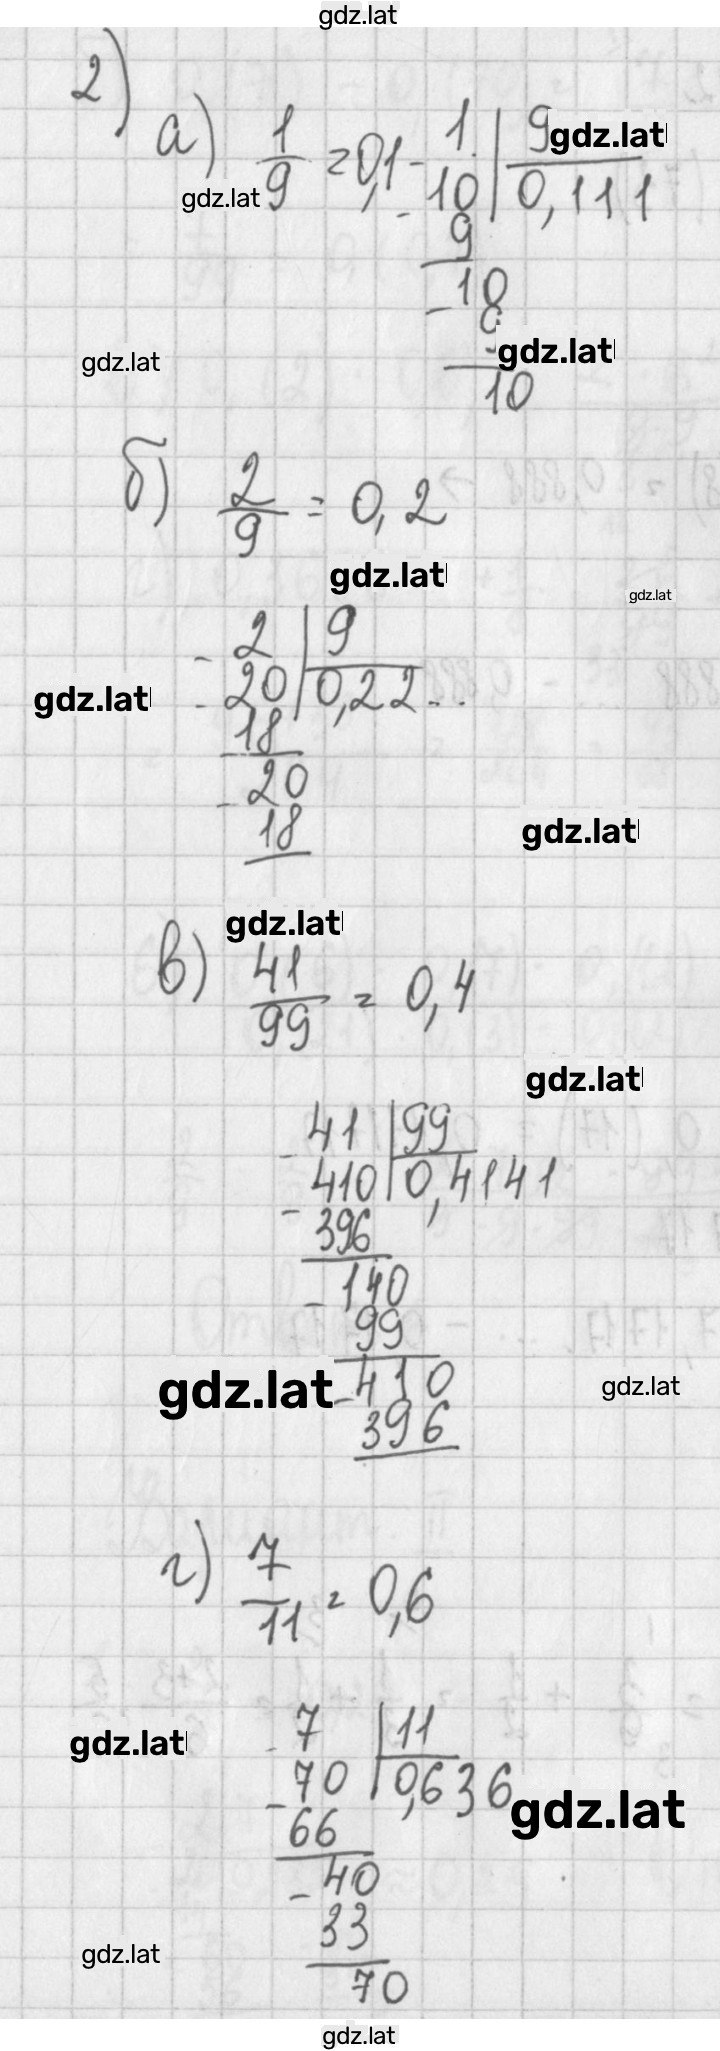 gdz.lat
2)
а) 1/9 = 0,1
- 1 | 9
gdz.lat
10 | 0,111
gdz.lat
- 9
10
-
gdz.lat
gdz.lat
10
б) 2/9 = 0,2
gdz.lat
gdz.lat
- 2 | 9
gdz.lat
- 20 | 0,22...
18
- 20
18
gdz.lat
gdz.lat
в) 41/99 = 0,4
gdz.lat
- 41 | 99
410 | 0,4141
- 396
- 140
99
gdz.lat
- 410
gdz.lat
396
г) 7/11 = 0,6
gdz.lat
- 7 | 11
70 | 0,636
gdz.lat
- 66
- 40
33
gdz.lat
70
gdz.lat